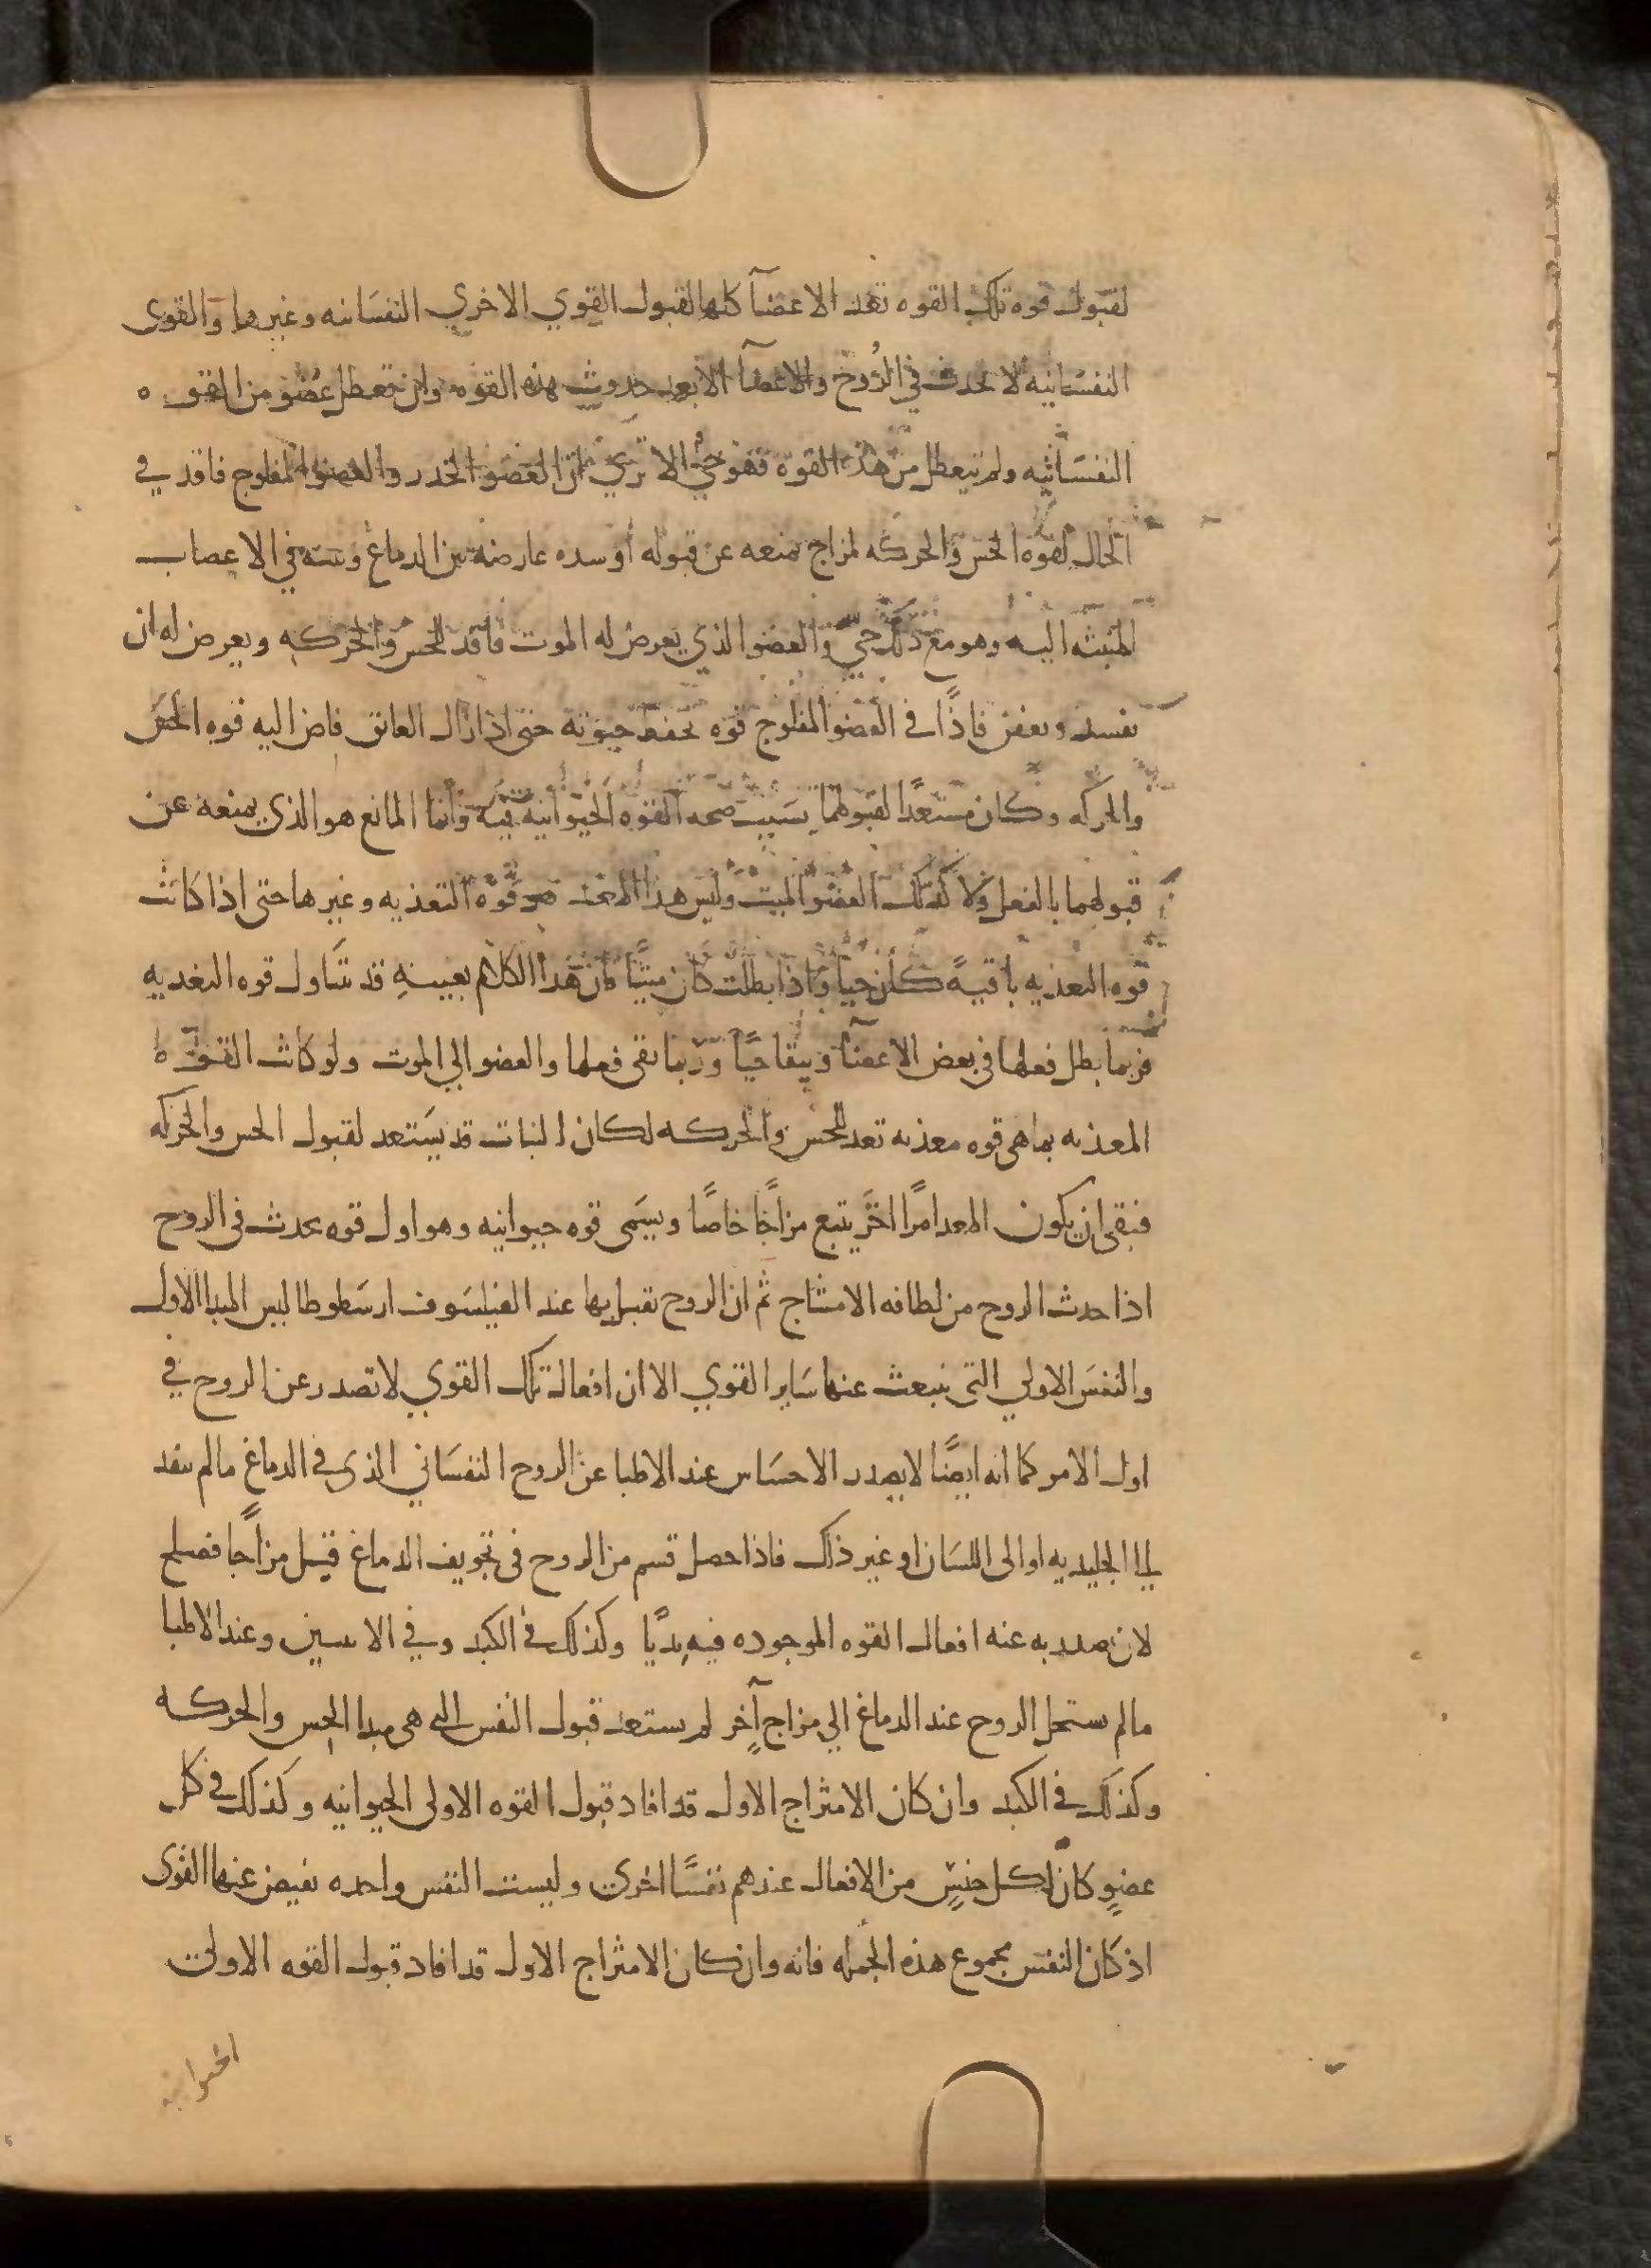 لقبول قوه تلك القوه تعد الاعضآ كلها لقبول القوي الاخري النفسانيه وغيرها والقوى
النفسانيه لا تحدث في الرُوح والاعضآ الا بعد حدوث هذه القوه وان تعطل عضو من القوه
النفسانيه ولم يتعطل من هذه القوة فهو حيٌ الا تري ان العضو الخدر والعضو المفلوج فاقد في
الحال لقوه الحس والحركه لمزاج يمنعه عن قبوله أو سده عارضه بين الدماغ وبينه في الاعصاب
المنبثه اليه وهو مع ذلك حيّ والعضو الذي يعرض له الموت فاقد للحس والحركه ويعرض له ان
يفسد ويعفن فاذًا في العضو المفلوج قوه تحفظ حيوته حتى اذا زال العائق فاض اليه قوه الحس
والحركه وكان مستعدًا لقبولهما بسبب صحه القوه الحيوانيه فيه وانما المانع هو الذي يمنعه عن
قبولهما بالفعل ولا كذلك العضو الميت وليس هذا المعد هو قوه التغذيه وغيرها حتى اذا كانت
قوه التغذيه باقيةً كان حيًا واذا بطلت كان ميتًا فان هذا الكلام بعينهِ قد يتناول قوه التغديه
فربما بطل فعلها في بعض الاعضآ ويبقا حيًا وربما بقى فعلها والعضو الي الموت ولو كانت القوه
المغذيه بما هى قوه مغذيه تعد للحس والحركه لكان النبات قد يستعد لقبول الحس والحركه
فبقى ان يكون المعد امرًا اخَر يتبع مزاجًا خاصًا ويسمى قوه حيوانيه وهو اول قوه تحدث في الروح
اذا حدث الروح من لطافه الامشاج ثم ان الروح تقبل بها عند الفيلسوف ارسطوطاليس المبدا الاول
والنفس الاولي التى ينبعث عنها ساير القوي الا ان افعال تلك القوي لا تصدر عن الروح في
اول الامر كما انه ايضًا لا يصدر الاحساس عند الاطبا عن الروح النفساني الذى في الدماغ ما لم ينفد
الي الجليديه او الى اللسان او غير ذلك فاذا حصل قسم من الروح في تجويف الدماغ قبل مزاجًا فصلح
لان يصدر به عنه افعال القوه الموجوده فيه بديًا وكذلك في الكبد وفي الانثيين وعند الاطبا
ما لم يستحل الروح عند الدماغ الي مزاج آخر لم يستعد قبول النفس التى هى مبدا الحس والحركه
وكذلك في الكبد وان كان الامتزاج الاول قد افاد قبول القوه الاولى الحيوانيه وكذلك في كل
عضوٍ كان لكل جنسٍ من الافعال عندهم نفسًا اخرى وليست النفس واحده يفيض عنها القوى
اذ كان النفس مجموع هذه الجمله فانه وان كان الامتزاج الاول قد افاد قبول القوه الاولى
الحيوانيه